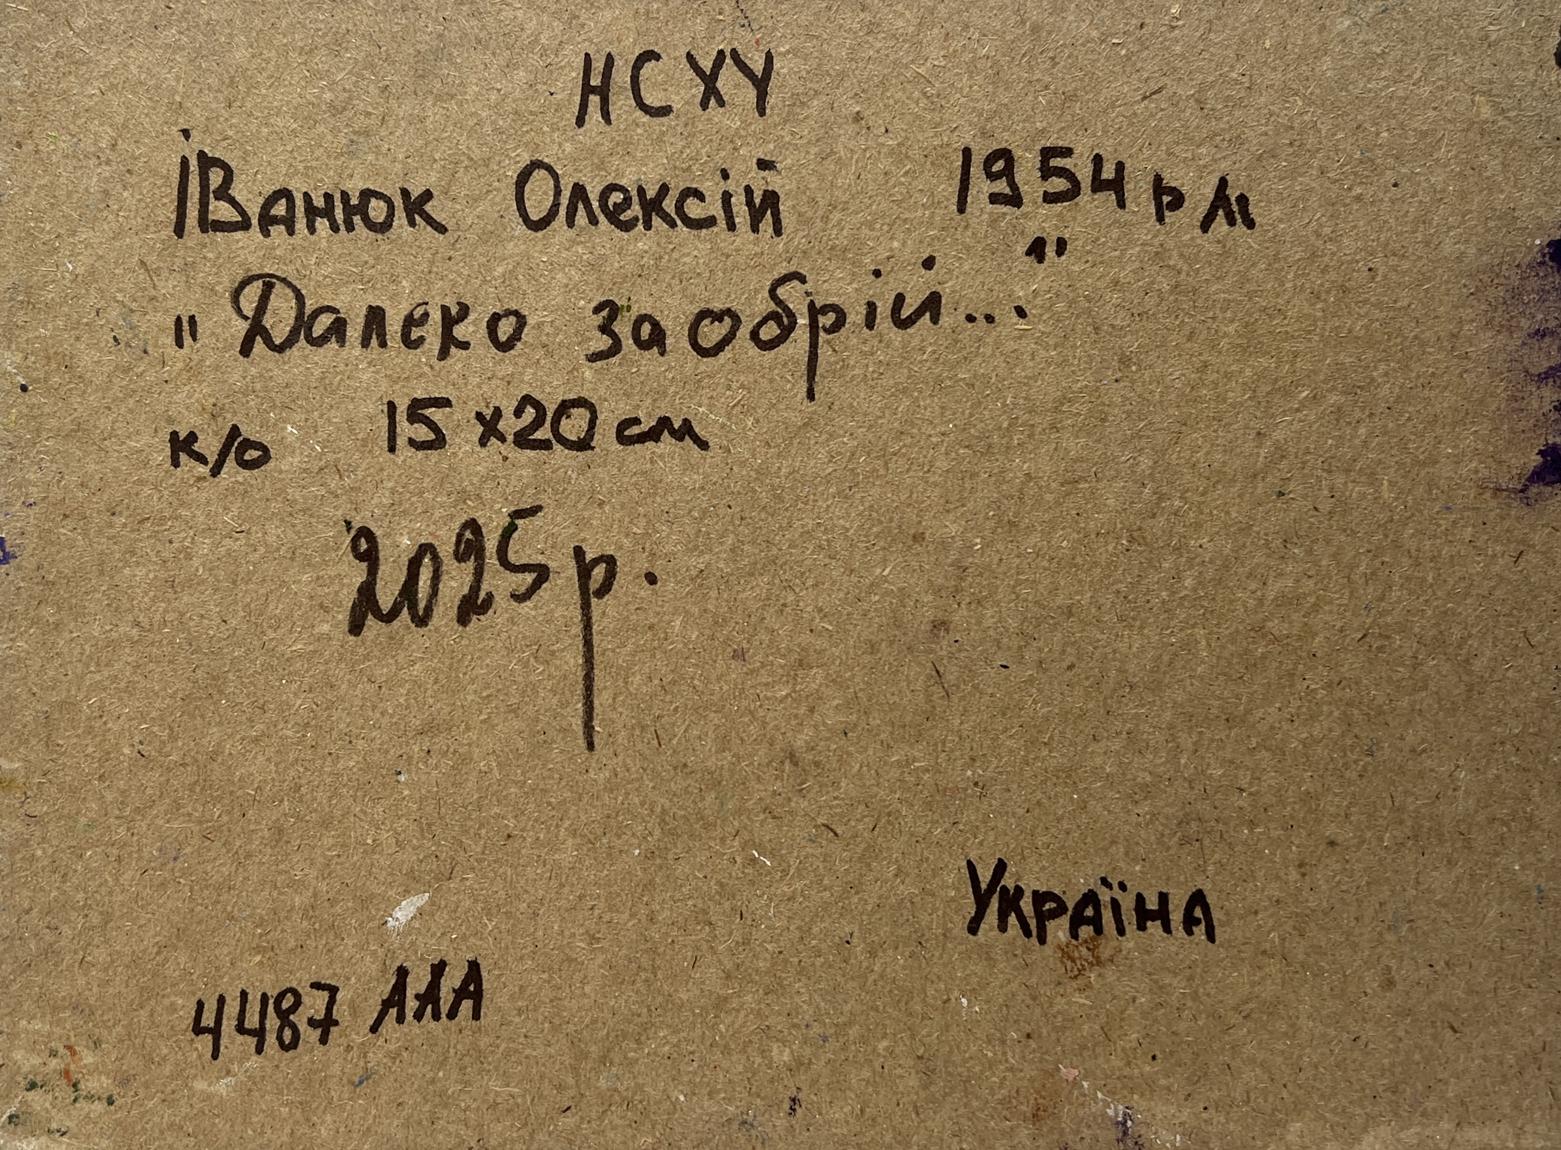 НСХУ
Іванюк Олексій 1954 р/н
"Далеко за обрій..."
к/о 15х20 см
2025 р.
Україна
4487 ААА